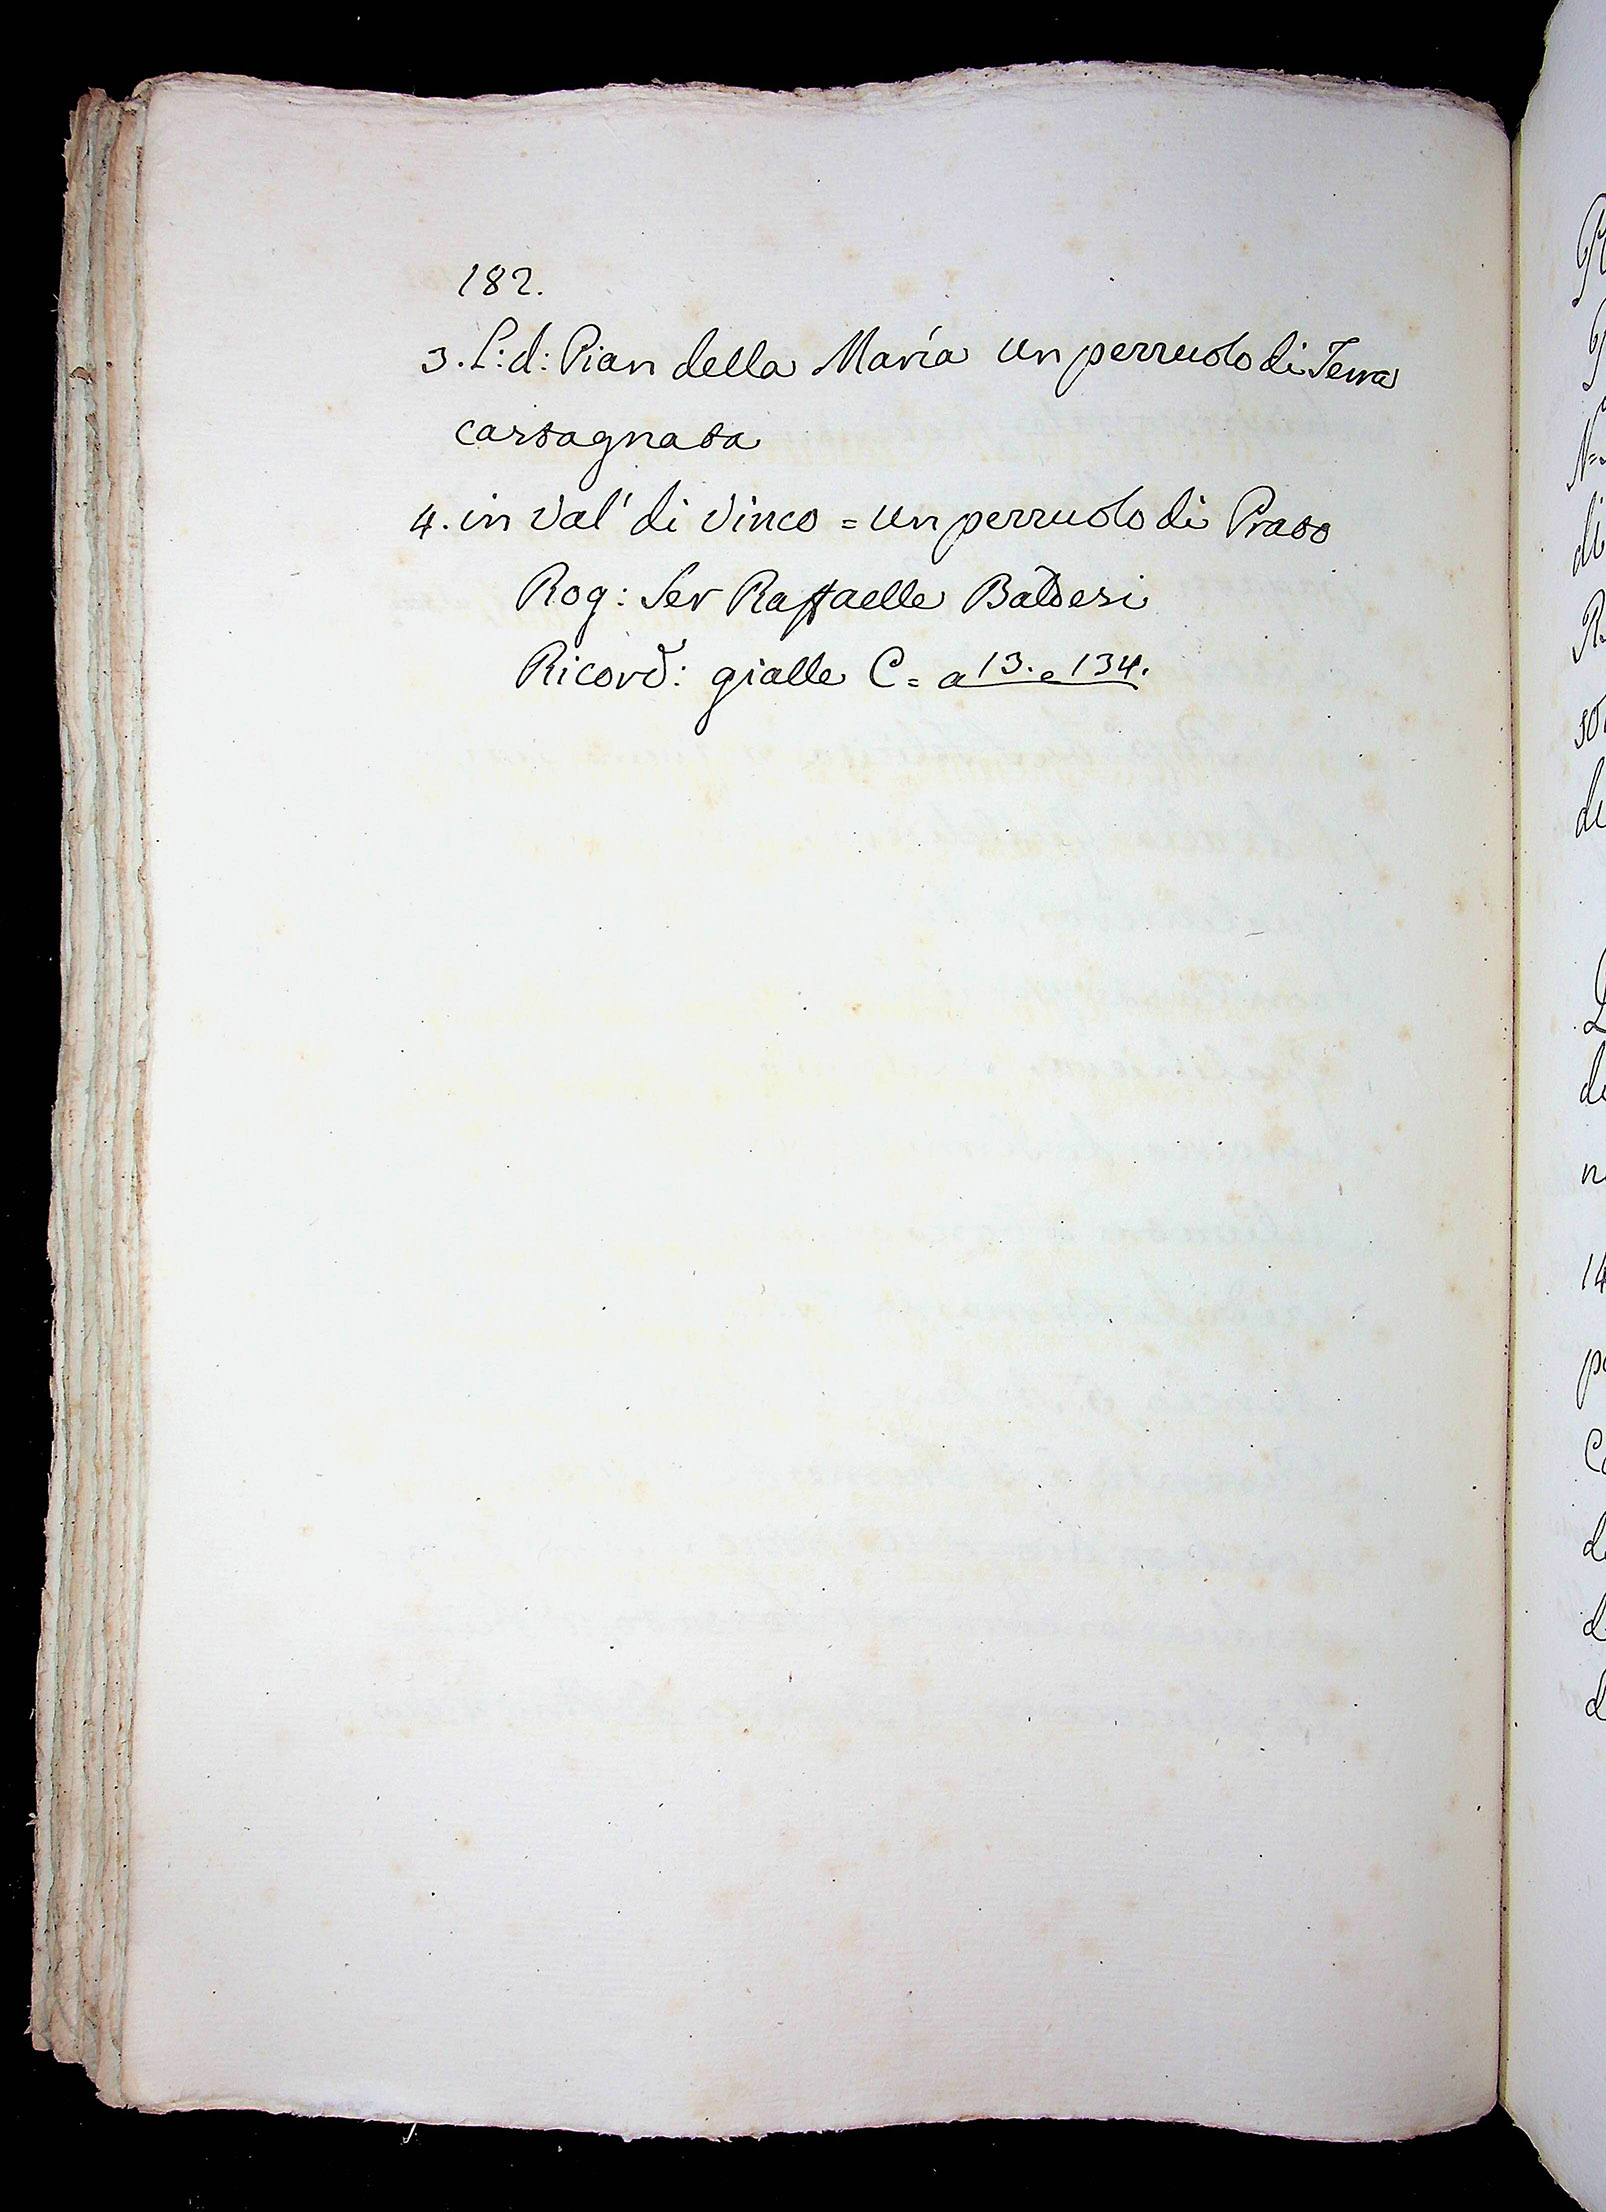 182.
3. L: d: Pian della Maria un pezzuolo di Terra
castagnata
4. in Val' di Vinco = un pezzuolo di Prato
Rog: Ser Raffaelle Baldesi
Ricord: gialle C = a 13. e 134.